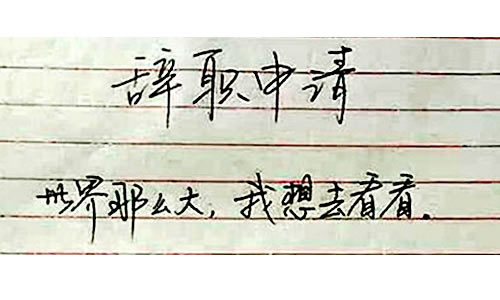 辞职申请
世界那么大,我想去看看。